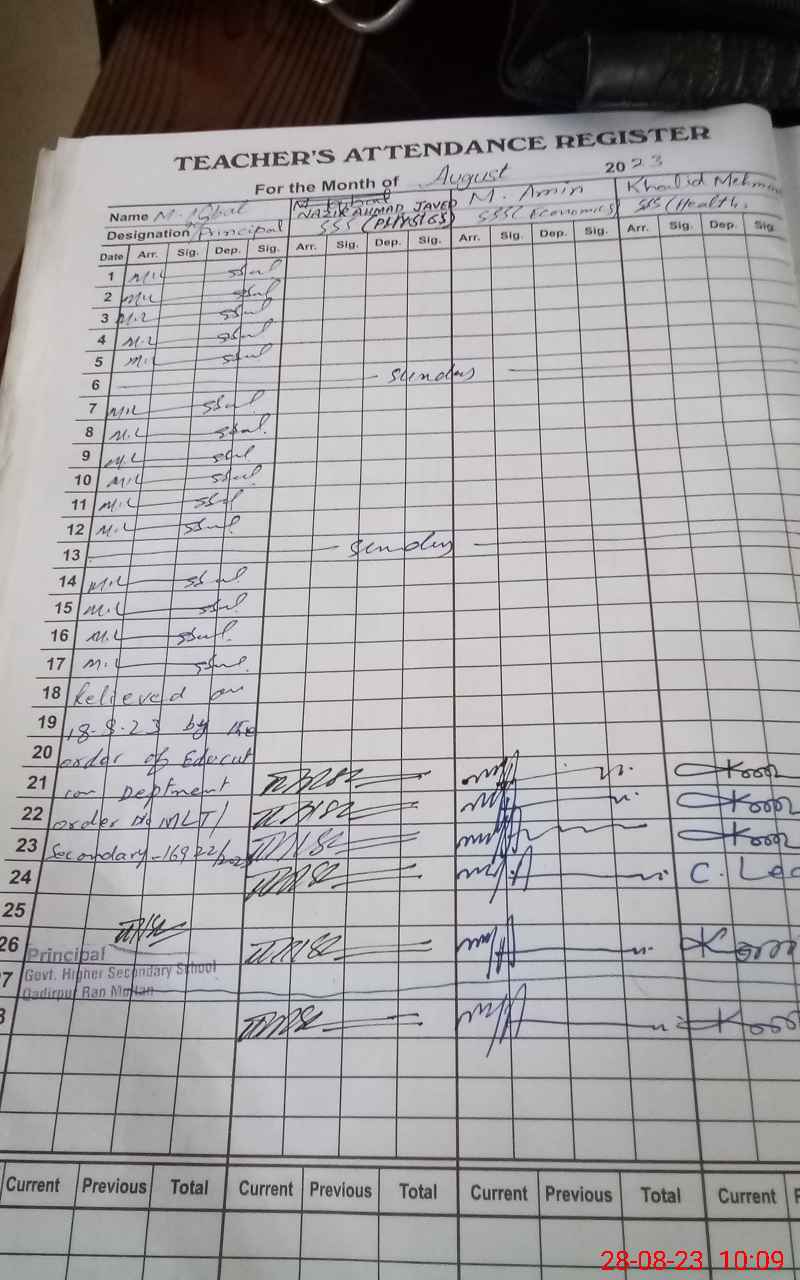 TEACHER'S ATTENDANCE REGISTER
For the Month of August 2023
Name M. Iqbal NAZIR AHMAD JAVED M. Amin Khalid Mehm
Designation Principal SSS (PHYSICS) SSS (Economics) SSS (Health)
Date Arr. Sig. Dep. Sig. Arr. Sig. Dep. Sig. Arr. Sig. Dep. Sig. Arr. Sig. Dep. Sig.
1 M.L
2 M.L
3 M.L
4 M.L
5 M.L
6 Sunday
7 M.L
8 M.L
9 M.L
10 M.L
11 M.L
12 M.L
13 Sunday
14 M.L
15 M.L
16 M.L
17 M.L
18 Relieved on
19 18-8-23 by the
20 order of Educat
21 ion Deptment
22 order No MLT/
23 Secondary-16922/2023
24 C. Lea
25
26
Principal
7 Govt. Higher Secondary School
Qadirpur Ran Multan
8
Current Previous Total Current Previous Total Current Previous Total Current P
28-08-23 10:09